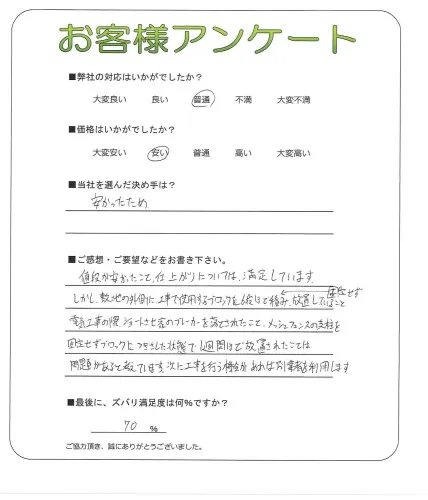 お客様アンケート
■弊社の対応はいかがでしたか？
大変良い 良い 普通 不満 大変不満
■価格はいかがでしたか？
大変安い 安い 普通 高い 大変高い
■当社を選んだ決め手は？
安かったため
■ご感想・ご要望などをお書き下さい。
値段が安かったこと、仕上がりについては、満足しています。
しかし、敷地の外側に工事で使用するブロックを6段ほど積み、放置していること
固定せず
電気工事の際、ショートさせ家のブレーカーを落とされたこと、メッシュフェンスの支柱を
固定せずブロックにつきさした状態で1週間ほど放置されたことは
問題があると考えています。次に工事を行う機会があれば別業者を利用します
■最後に、ズバリ満足度は何％ですか？
70 ％
ご協力頂き、誠にありがとうございました。